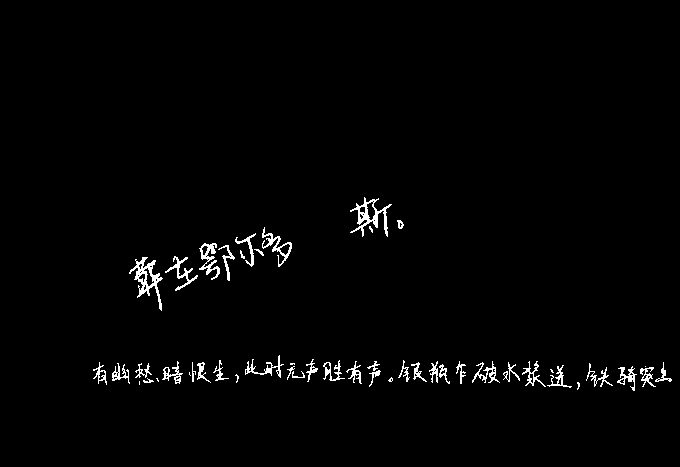 葬在鄂尔多斯。
有幽愁、暗恨生,此时无声胜有声。银瓶乍破水浆迸,铁骑突出